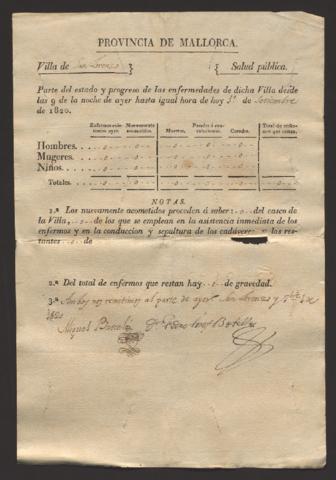 PROVINCIA DE MALLORCA.
Villa de San Lorenzo } { Salud pública.
Parte del estado y progreso de las enfermedades de dicha Villa desde
las 9 de la noche de ayer hasta igual hora de hoy de Setiembre
de 1820.
Enfermos existentes ayer. Nuevamente acometidos. Muertos. Pasados á convalecencia. Curados. Total de enfermos que restan.
Hombres. 0 0 0 0 0 0
Mugeres. 0 0 0 0 0 0
Niños. 0 0 0 0 0 0
Totales. 0 0 0 0 0 0
NOTAS.
1.ª Los nuevamente acometidos proceden á saber: 0 del casco de
la Villa, 0 de los que se emplean en la asistencia inmediata de los
enfermos y en la conduccion y sepultura de los cadáveres y los restantes
0 de
2.ª Del total de enfermos que restan hay 0 de gravedad.
3.ª nos remitimos al parte de ayer. San Lorenzo y
1820
Miquel